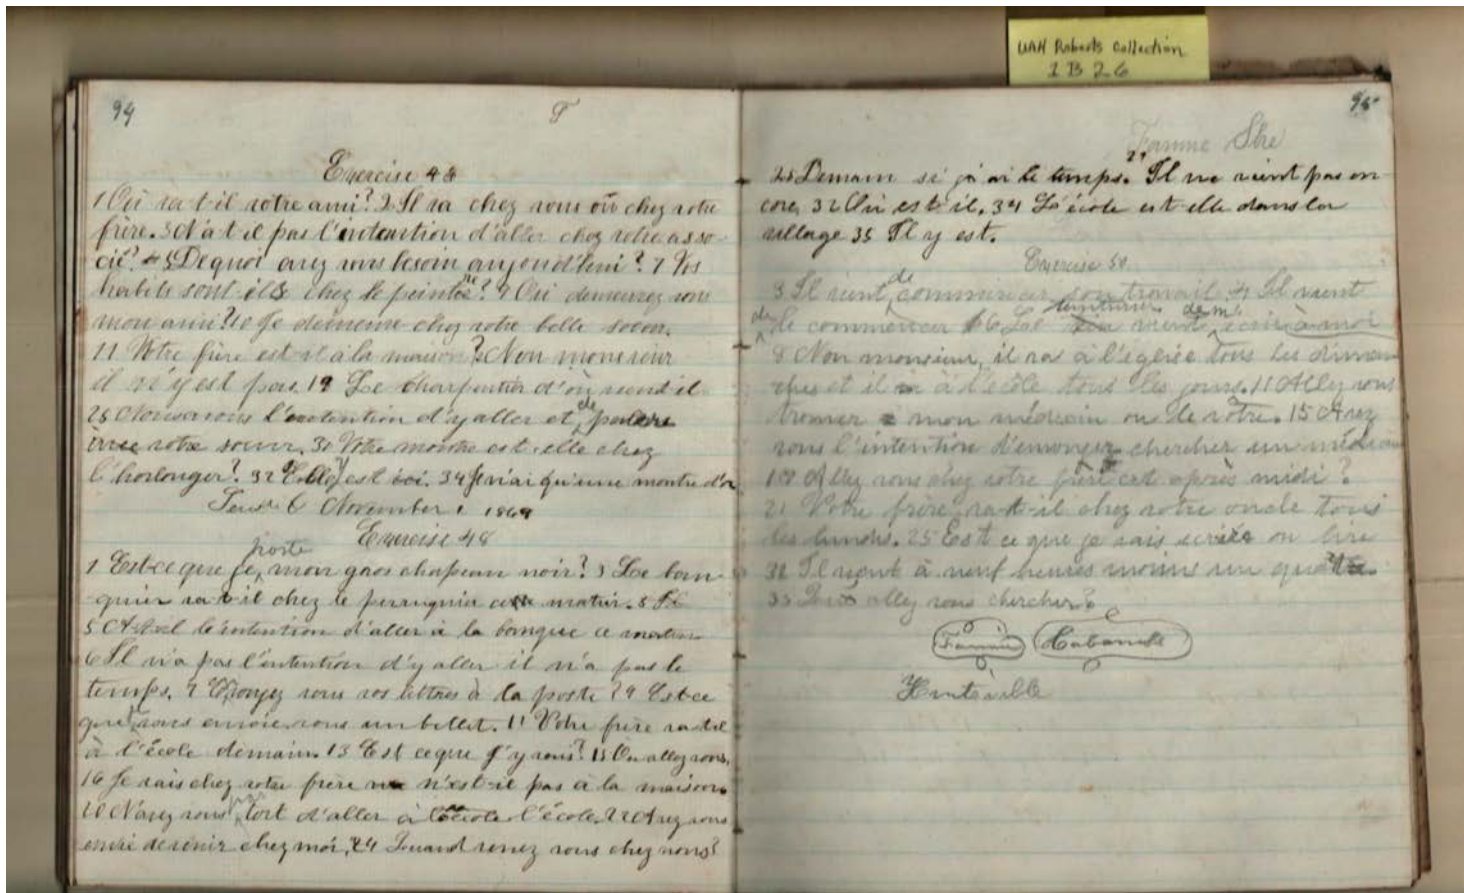 UAH Roberts Collection
1 B 26
94
Exercise 48
1 Où va t-il votre ami? 2 Il va chez vous où chez votre
frère. 3 N'a t-il pas l'intention d'aller chez votre asso-
cié? 5 De quoi avez vous besoin aujourd'hui? 7 Vos
habits sont ils chez le peintre? 9 Où demeurez vous
mon ami? 10 Je demeure chez votre belle soeur.
11 Votre frère est il à la maison? Non monsieur
il n'y est pas. 19 Le charpentier d'où vient-il
25 Nous avons l'intention d'y aller et de parler
votre soeur. 30 Votre montre est-elle chez
l'horloger? 32 Elle y est ici. 34 Je n'ai qu'une montre d'or
6 November 1869
Exercise 48
porte
1 Est-ce que je mon gros chapeau noir? 3 Le ban-
quier va t-il chez le perruquier ce matin. 5 Il
5 A t-il l'intention d'aller à la banque ce matin
6 Il n'a pas l'intention d'y aller il n'a pas le
temps. 7 Envoyez vous vos lettres à la poste? 9 Est-ce
que vous envoie vous un billet. 11 Votre frère va t-il
à l'école demain. 13 Est ce que j'y vais? 15 Ou allez vous.
16 Je vais chez votre frère n'est-il pas à la maison.
20 N'avez vous pas tort d'aller à l'école l'école. 22 Avez vous
envie de venir chez moi, 24 Quand venez vous chez nous?
95
Fannie
25 Demain si j'ai le temps. 29 Il ne vient pas en-
core, 32 Où est-il. 34 L'école est elle dans le
village 35 Il y est.
Exercise 50
3 Il vient de commencer son travail. 4 Il vient
de le commencer 6 Le teinturier vient
8 Non monsieur, il va à l'église tous les diman-
ches et il à l'école tous les jours. 11 Allez vous
trouver mon médecin ou le votre. 15 Avez
vous l'intention d'envoyer chercher un médecin
18 Allez vous chez votre frère cet après midi?
21 Votre frère va-t-il chez votre oncle tous
les lundis. 25 Est ce que je vais écrire ou lire
32 Il vient à neuf heures moins un quart
35 allez vous chercher?
Fannie Cabaniss
Huntsville